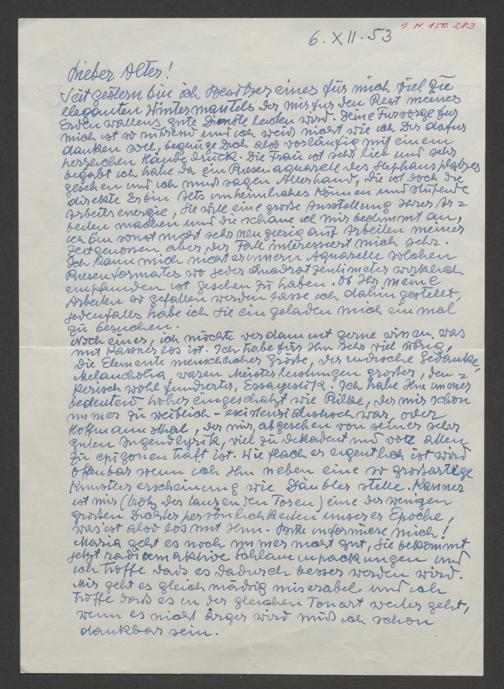 I.N. 150.283
6. XII. 53
Lieber Alter!
Seit gestern bin ich Besitzer eines für mich viel zu
eleganten Wintermantels der mir für den Rest meines
Erden wallens gute Dienste leisten wird. Deine Fürsorge für
mich ist so rührend und ich weiss nicht wie ich Dir dafür
danken soll, begnüge Dich also vorläufig mit einem
herzlichen Händedruck. Die Frau ist sehr lieb und sehr
begabt ich habe da ein Riesenaquarell des Stephansplatzes
gesehen und ich muss sagen Allerhand, die ist doch die
direkte Erbin unheimliches Können und
Arbeitsenergie, Sie will eine grosse Ausstellung ihrer Ar=
beiten machen und die schaue ich mir bestimmt an,
ich bin sonst nicht sehr neugierig auf Arbeiten meiner
Zeitgenossen aber der Fall interessiert mich sehr.
Ich kann mich nicht erinnern Aquarelle solchen
Riesenformates wo jeder Quadratzentimeter wirklich
empfunden ist gesehen zu haben. Ob Ihr meine
Arbeiten so gefallen werden lasse ich dahin gestellt,
jedenfalls habe ich sie eingeladen mich einmal
zu besuchen.
Noch eines, ich möchte verdammt gerne wissen was
mit Kassner los ist. Ich habe für Ihn sehr viel übrig,
die Elemente menschlicher Grösse, der indische Gedanke,
Melancholia, waren Meisterleistungen grosser, den=
kerisch wohl fundierter, Essayistik. Ich habe Ihn immer
bedeutend höher eingeschätzt wie Rilke, der mir schon
immer zu weiblich - existenzialistisch war, oder
Hoffmannsthal, der mir, abgesehen von seiner sehr
guten Jugendlyrik, viel zu dekadent und trotz allem
zu epigonenhaft ist. Wie flach er eigentlich ist wird
offenbar wenn ich Ihn neben eine so grossartige
Künstlererscheinung wie Däubler stelle. Kassner
ist mir (trotz des Tosen) eine der wenigen
grossen Dichterpersönlichkeiten unserer Epoche,
was ist also los mit Ihm. Bitte informiere mich!
Maria geht es noch immer nicht gut, Sie bekommt
jetzt radioamaktive Schlammpackungen und
ich hoffe dass es dadurch besser werden wird.
Mir geht es gleichmässig miserabel und ich
hoffe dass es in der gleichen Tonart weiter geht,
wenn es nicht ärger wird muss ich schon
dankbar sein.